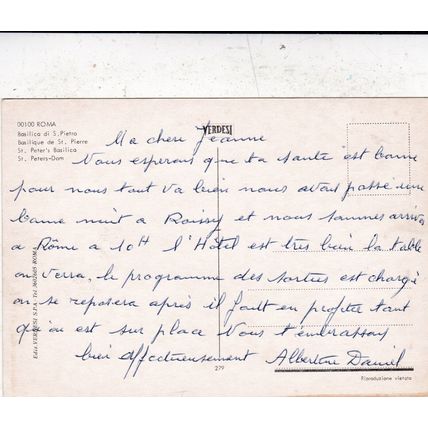 00100 ROMA
Basilica di S. Pietro
Basilique de St. Pierre
St. Peter's Basilica
St. Peters-Dom
VERDESI
Ma chere Jeanne
Nous esperons que ta santé est bonne
pour nous tout va bien nous avons passé une
bonne nuit a Roissy et nous sommes arrivés
a Rôme a 10H l'Hôtel est très bien la table
on verra, le programme des sorties est chargé
on se reposera après il faut en profiter tant
qu'on est sur place Nous t'embrassons
bien affectueusement Albertine Daniel
Ediz. VERDESI S.P.A. - Tel. ROMA
279
Riproduzione vietata